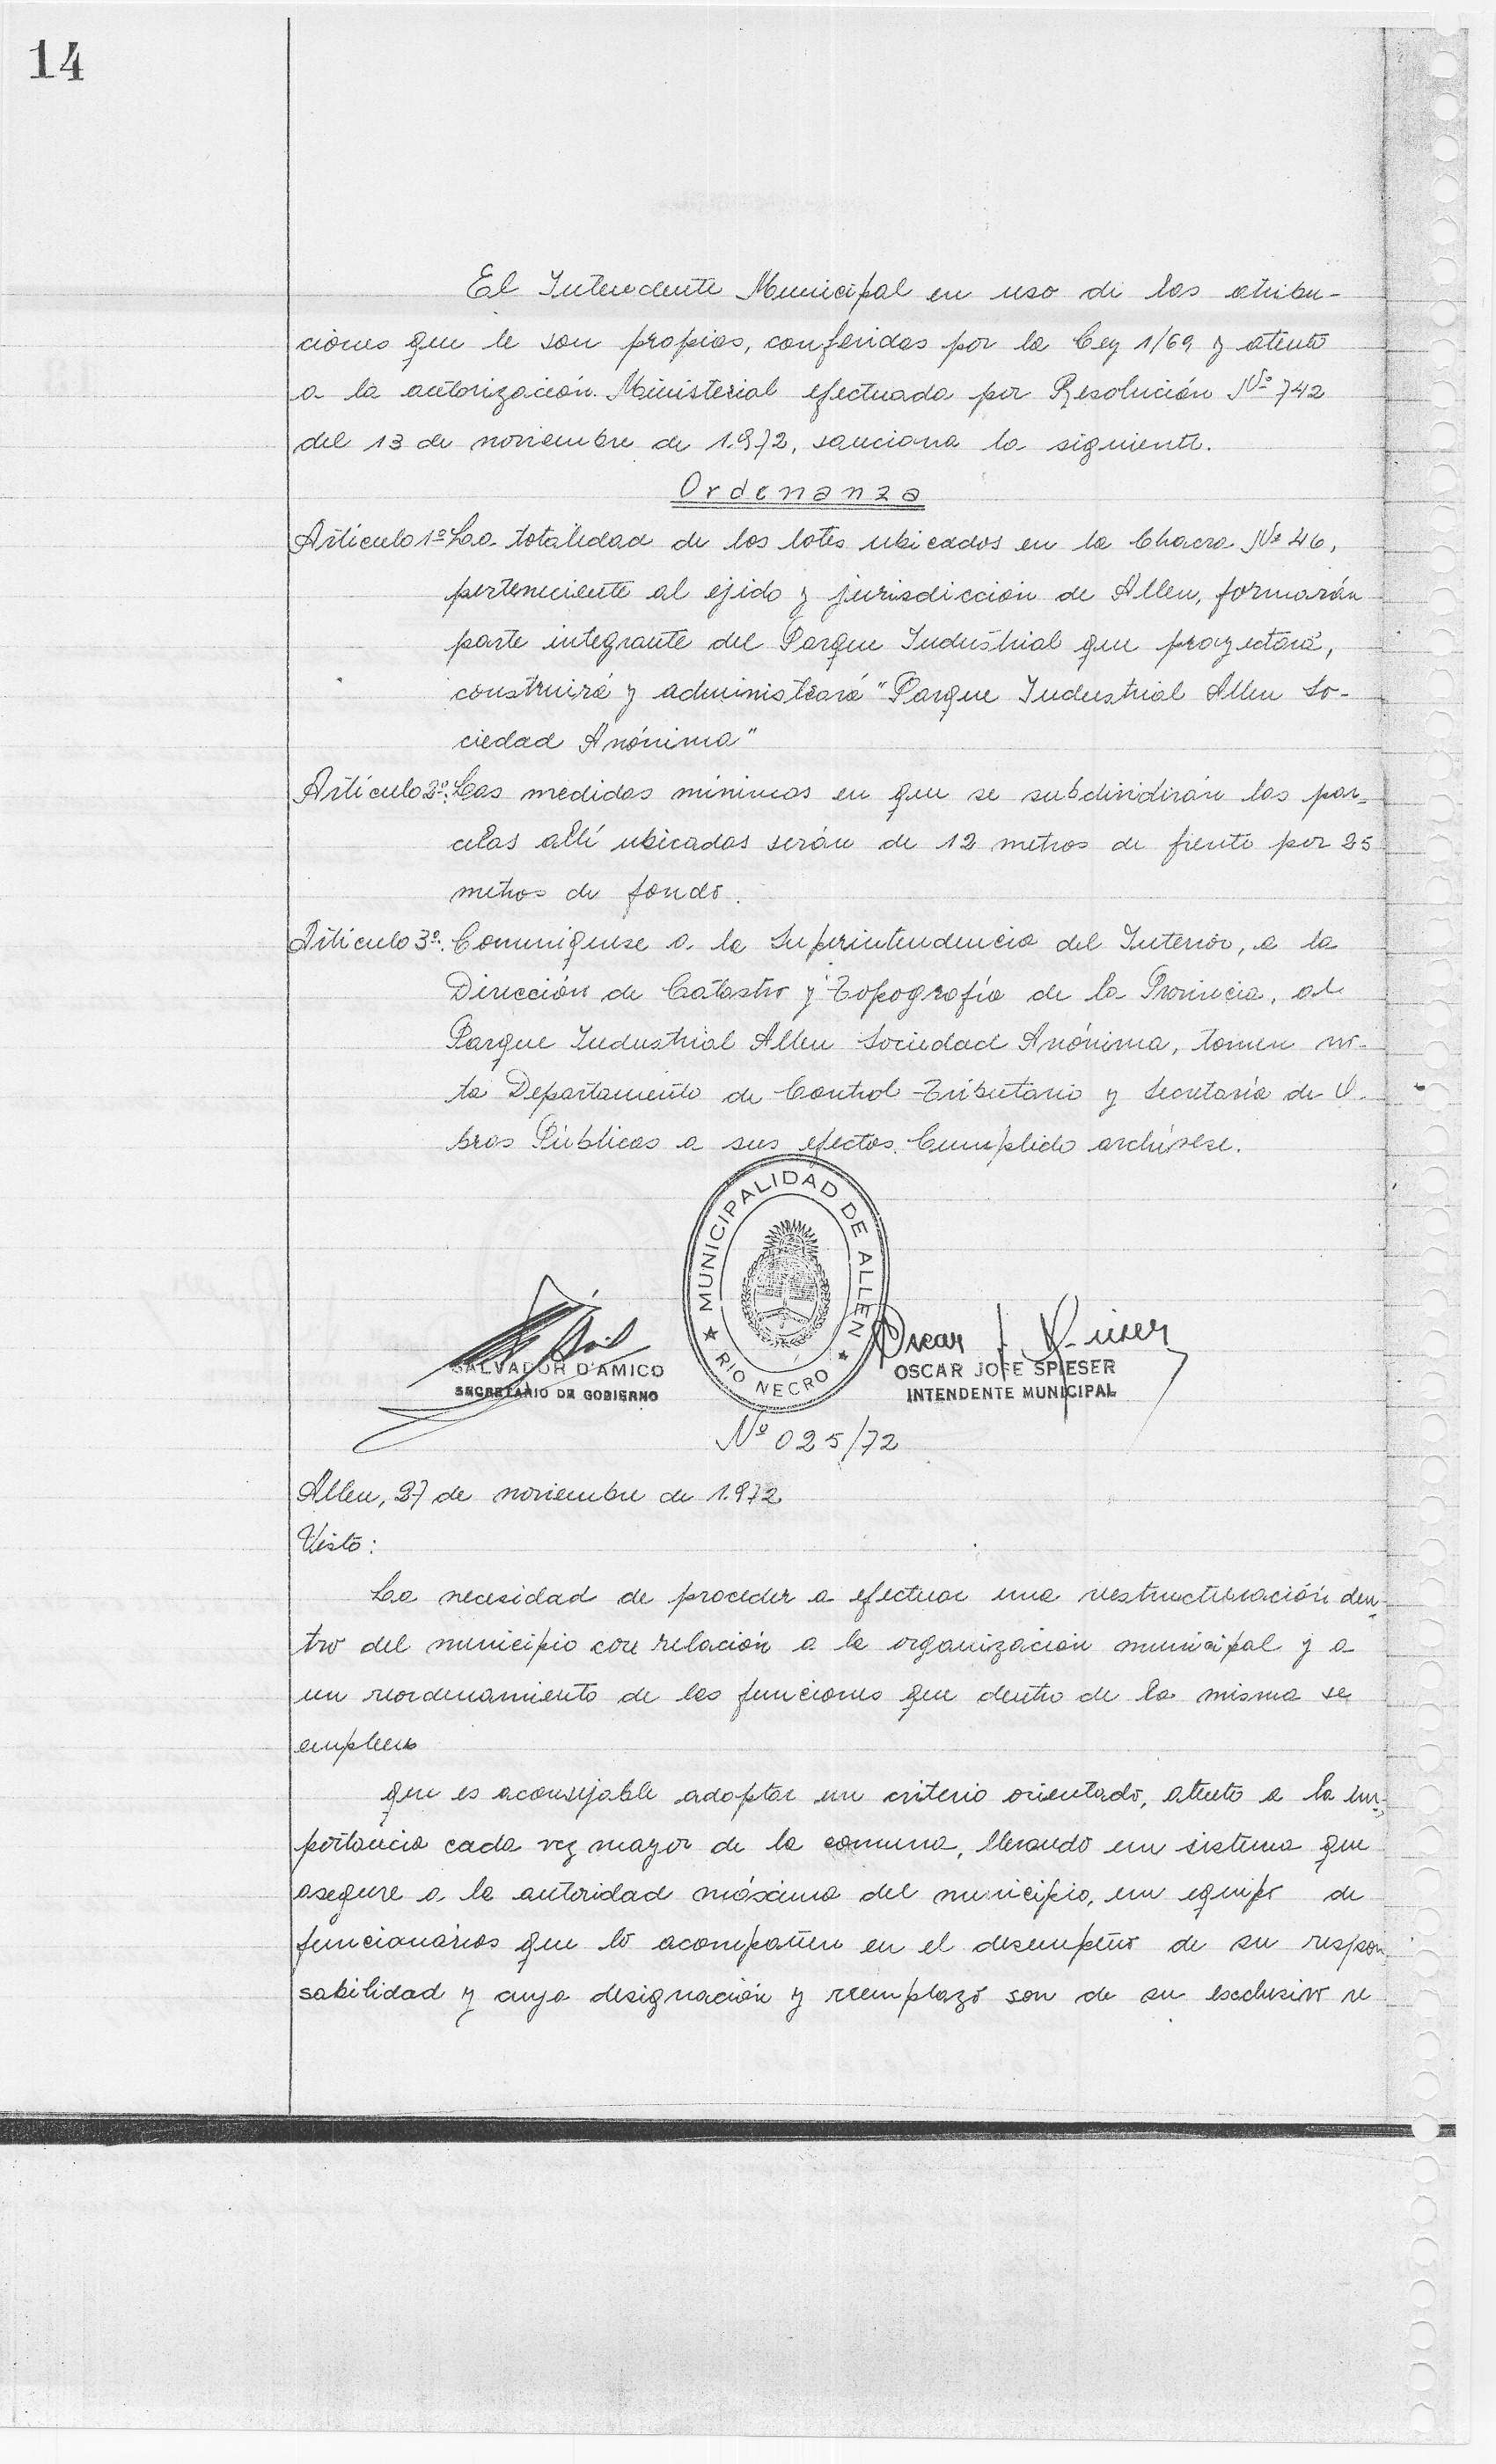 14
El Intendente Municipal en uso de las atribu-
ciones que le son propias, conferidas por la Ley 1/69 y atento
a la autorización Ministerial efectuada por Resolución Nº 742
del 13 de noviembre de 1.972, sanciona la siguiente.
Ordenanza
Artículo 1º La totalidad de los lotes ubicados en la Chacra Nº 46,
perteneciente al ejido y jurisdicción de Allen, formarán
parte integrante del Parque Industrial que proyectará,
construirá y administrará "Parque Industrial Allen So-
ciedad Anónima"
Artículo 2º: Las medidas mínimas en que se subdividirán las par-
celas allí ubicadas serán de 12 metros de frente por 25
metros de fondo.
Artículo 3º: Comuníquese a la Superintendencia del Interior, a la
Dirección de Catastro y Topografía de la Provincia, al
Parque Industrial Allen Sociedad Anónima, tomen no-
ta Departamento de Control Tributario y Secretaría de O-
bras Públicas a sus efectos. Cumplido archívese.
★ MUNICIPALIDAD DE ALLEN ★
RIO NEGRO
Oscar J. Spieser
SALVADOR D'AMICO
SECRETARIO DE GOBIERNO
OSCAR JOSE SPIESER
INTENDENTE MUNICIPAL
Nº 025/72
Allen, 27 de noviembre de 1.972
Visto:
La necesidad de proceder a efectuar una restructuración den-
tro del municipio con relación a la organización municipal y a
un reordenamiento de las funciones que dentro de la misma se
emplean
que es aconsejable adoptar un criterio orientado, atento a la im-
portancia cada vez mayor de la comuna, llevando un sistema que
asegure a la autoridad máxima del municipio, un equipo de
funcionarios que lo acompañen en el desempeño de su respon
sabilidad y cuya designación y reemplazo son de su esclusivo re